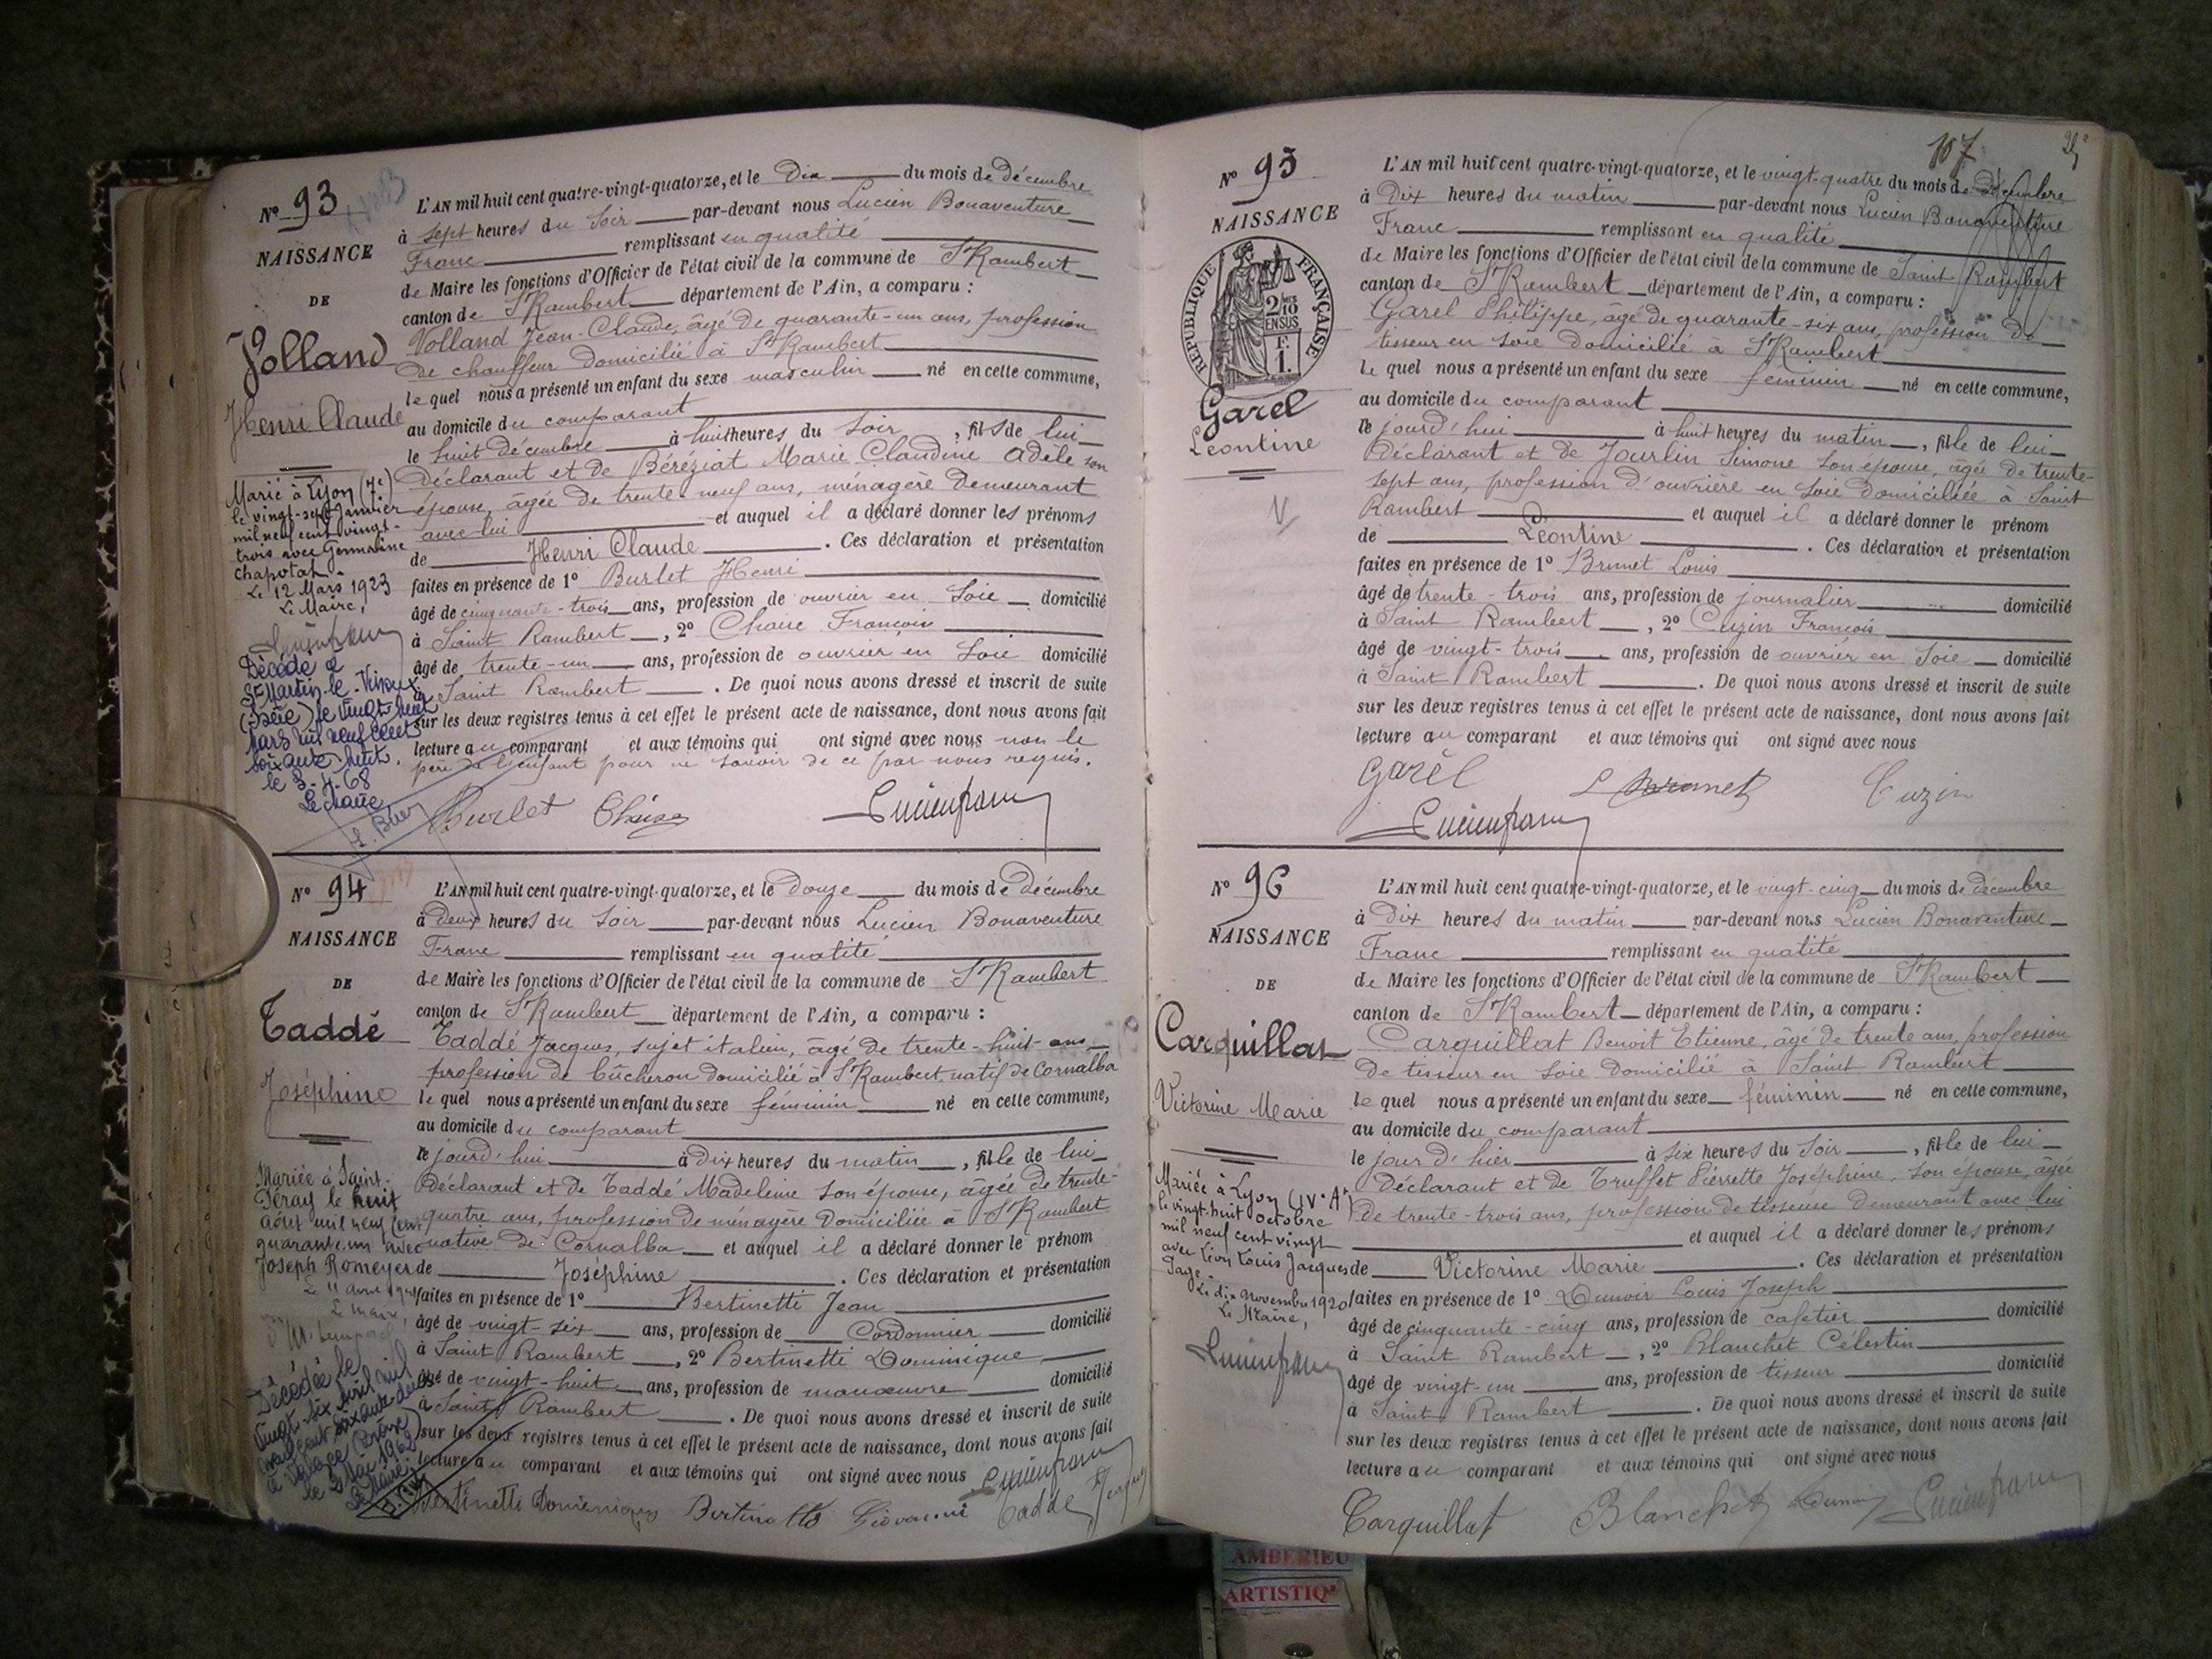 Nº 93
NAISSANCE
DE
Volland
Henri Claude
Marié à Lyon (7e)
le vingt-sept Janvier
mil neuf cent vingt-
trois avec Germaine
Chapotat.
Le 12 Mars 1923
Le Maire,
Décédé à
St Martin-le-Vinoux
(Isère) le vingt-huit
Mars mil neuf cent
soixante-huit.
le 3-4-68
Le Maire
L'AN mil huit cent quatre-vingt-quatorze, et le Dix du mois de Décembre
à sept heures du Soir par-devant nous Lucien Bonaventure
Franc remplissant en qualité
de Maire les fonctions d'Officier de l'état civil de la commune de St Rambert
canton de St Rambert département de l'Ain, a comparu :
Volland Jean-Claude, âgé de quarante-un ans, profession
de chauffeur domicilié à St Rambert
le quel nous a présenté un enfant du sexe masculin né en cette commune,
au domicile du comparant
le huit Décembre à huit heures du Soir, fils de lui
Déclarant et de Béréziat Marie Claudine Adèle son
épouse, âgée de trente-neuf ans, ménagère Demeurant
avec lui et auquel il a déclaré donner les prénoms
de Henri Claude. Ces déclaration et présentation
faites en présence de 1º Burlet Henri
âgé de cinquante-trois ans, profession de ouvrier en Soie domicilié
à Saint Rambert, 2º François
âgé de trente-un ans, profession de ouvrier en Soie domicilié
à Saint Rambert. De quoi nous avons dressé et inscrit de suite
sur les deux registres tenus à cet effet le présent acte de naissance, dont nous avons fait
lecture au comparant et aux témoins qui ont signé avec nous non le
père de l'enfant pour ne savoir de ce par nous requis.
Burlet Lucien franc
Nº 94
NAISSANCE
DE
Taddé
Joséphine
Mariée à Saint-
Péray le huit
Août mil neuf cent
quarante-un avec
Joseph Romeyer
Décédée le
vingt-six Avril mil
neuf cent soixante-deux
à Valence (Drôme)
le 2 Mai 1962
Le Maire,
L'AN mil huit cent quatre-vingt-quatorze, et le Douze du mois de Décembre
à Deux heures du Soir par-devant nous Lucien Bonaventure
Franc remplissant en qualité
de Maire les fonctions d'Officier de l'état civil de la commune de St Rambert
canton de St Rambert département de l'Ain, a comparu :
Taddé Jacques, sujet italien, âgé de trente-huit ans
profession de bûcheron domicilié à St Rambert, natif de Cornalba
le quel nous a présenté un enfant du sexe féminin né en cette commune,
au domicile du comparant
le jourd'hui à dix heures du matin, fille de lui
Déclarant et de Taddé Madeleine son épouse, âgée de trente-
quatre ans, profession de ménagère Domiciliée à St Rambert
native de Cornalba et auquel il a déclaré donner le prénom
de Joséphine. Ces déclaration et présentation
faites en présence de 1º Bertinetti Jean
âgé de vingt-six ans, profession de Cordonnier domicilié
à Saint Rambert, 2º Bertinetti Dominique
âgé de vingt-huit ans, profession de manœuvre domicilié
à Saint Rambert. De quoi nous avons dressé et inscrit de suite
sur les deux registres tenus à cet effet le présent acte de naissance, dont nous avons fait
lecture au comparant et aux témoins qui ont signé avec nous Lucien franc
Giovanni Taddé
107
Nº 95
NAISSANCE
REPUBLIQUE FRANÇAISE
2/10 EN SUS
F.
1.
Garel
Léontine
L'AN mil huit cent quatre-vingt-quatorze, et le vingt-quatre du mois de Décembre
à Dix heures du matin par-devant nous Lucien Bonaventure
Franc remplissant en qualité
de Maire les fonctions d'Officier de l'état civil de la commune de Saint Rambert
canton de St Rambert département de l'Ain, a comparu :
Garel Philippe, âgé de quarante-six ans, profession de
tisseur en soie Domicilié à St Rambert
le quel nous a présenté un enfant du sexe féminin né en cette commune,
au domicile du comparant
le jourd'hui à huit heures du matin, fille de lui
Déclarant et de Jourlin Simone son épouse, âgée de trente-
sept ans, profession d'ouvrière en Soie domiciliée à Saint
Rambert et auquel il a déclaré donner le prénom
de Léontine. Ces déclaration et présentation
faites en présence de 1º Brunet Louis
âgé de trente-trois ans, profession de journalier domicilié
à Saint Rambert, 2º Cuzin François
âgé de vingt-trois ans, profession de ouvrier en Soie domicilié
à Saint Rambert. De quoi nous avons dressé et inscrit de suite
sur les deux registres tenus à cet effet le présent acte de naissance, dont nous avons fait
lecture au comparant et aux témoins qui ont signé avec nous
Garel L Brunet Cuzin
Lucien franc
Nº 96
NAISSANCE
DE
Carquillat
Victorine Marie
Mariée à Lyon (IVe Art)
le vingt-huit octobre
mil neuf cent vingt
avec Léon Louis Jacques
Page.
Le dix novembre 1920
Le Maire,
Lucien franc
L'AN mil huit cent quatre-vingt-quatorze, et le vingt-cinq du mois de décembre
à Dix heures du matin par-devant nous Lucien Bonaventure
Franc remplissant en qualité
de Maire les fonctions d'Officier de l'état civil de la commune de St Rambert
canton de St Rambert département de l'Ain, a comparu :
Carquillat Benoit Etienne, âgé de trente ans, profession
de tisseur en soie Domicilié à Saint Rambert
le quel nous a présenté un enfant du sexe féminin né en cette commune,
au domicile du comparant
le jour d'hier à six heures du Soir, fille de lui
déclarant et de Truffet Pierrette Joséphine, son épouse, âgée
de trente-trois ans, profession de tisseuse demeurant avec lui
et auquel il a déclaré donner les prénoms
de Victorine Marie. Ces déclaration et présentation
faites en présence de 1º Dunoir Louis Joseph
âgé de cinquante-cinq ans, profession de cafetier domicilié
à Saint Rambert, 2º Blanchet Célestin
âgé de vingt-un ans, profession de tisseur domicilié
à Saint Rambert. De quoi nous avons dressé et inscrit de suite
sur les deux registres tenus à cet effet le présent acte de naissance, dont nous avons fait
lecture au comparant et aux témoins qui ont signé avec nous
Carquillat Blanchet Dunoir Lucien franc
AMBERIEU
ARTISTIQ